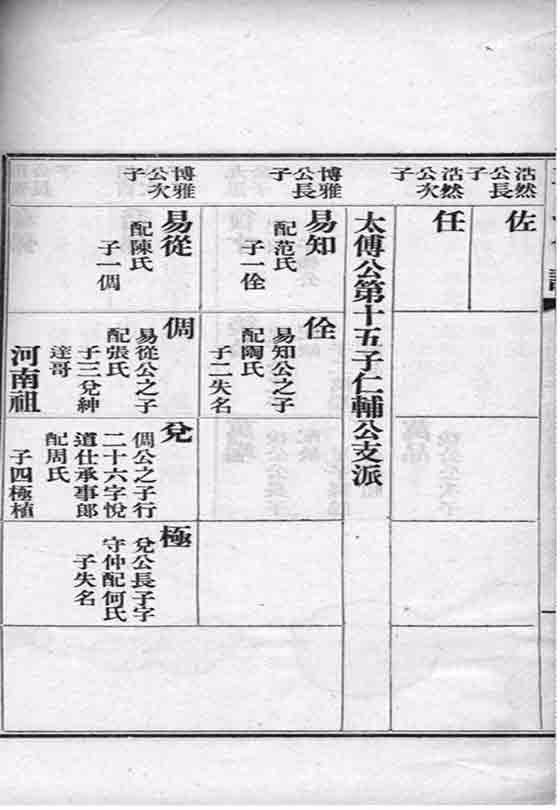 浩然
公長
子
佐
浩然
公次
子
任
太傅公第十五子仁輔公支派
博雅
公長
子
易知
配范氏
子一佺
佺
易知公之子
配陶氏
子二失名
博雅
公次
子
易從
配陳氏
子一倜
倜
易從公之子
配張氏
子三兌紳
達哥
河南祖
兌
倜公之子行
二十六字悅
道仕承事郎
配周氏
子四極植
極
兌公長子字
守仲配何氏
子失名